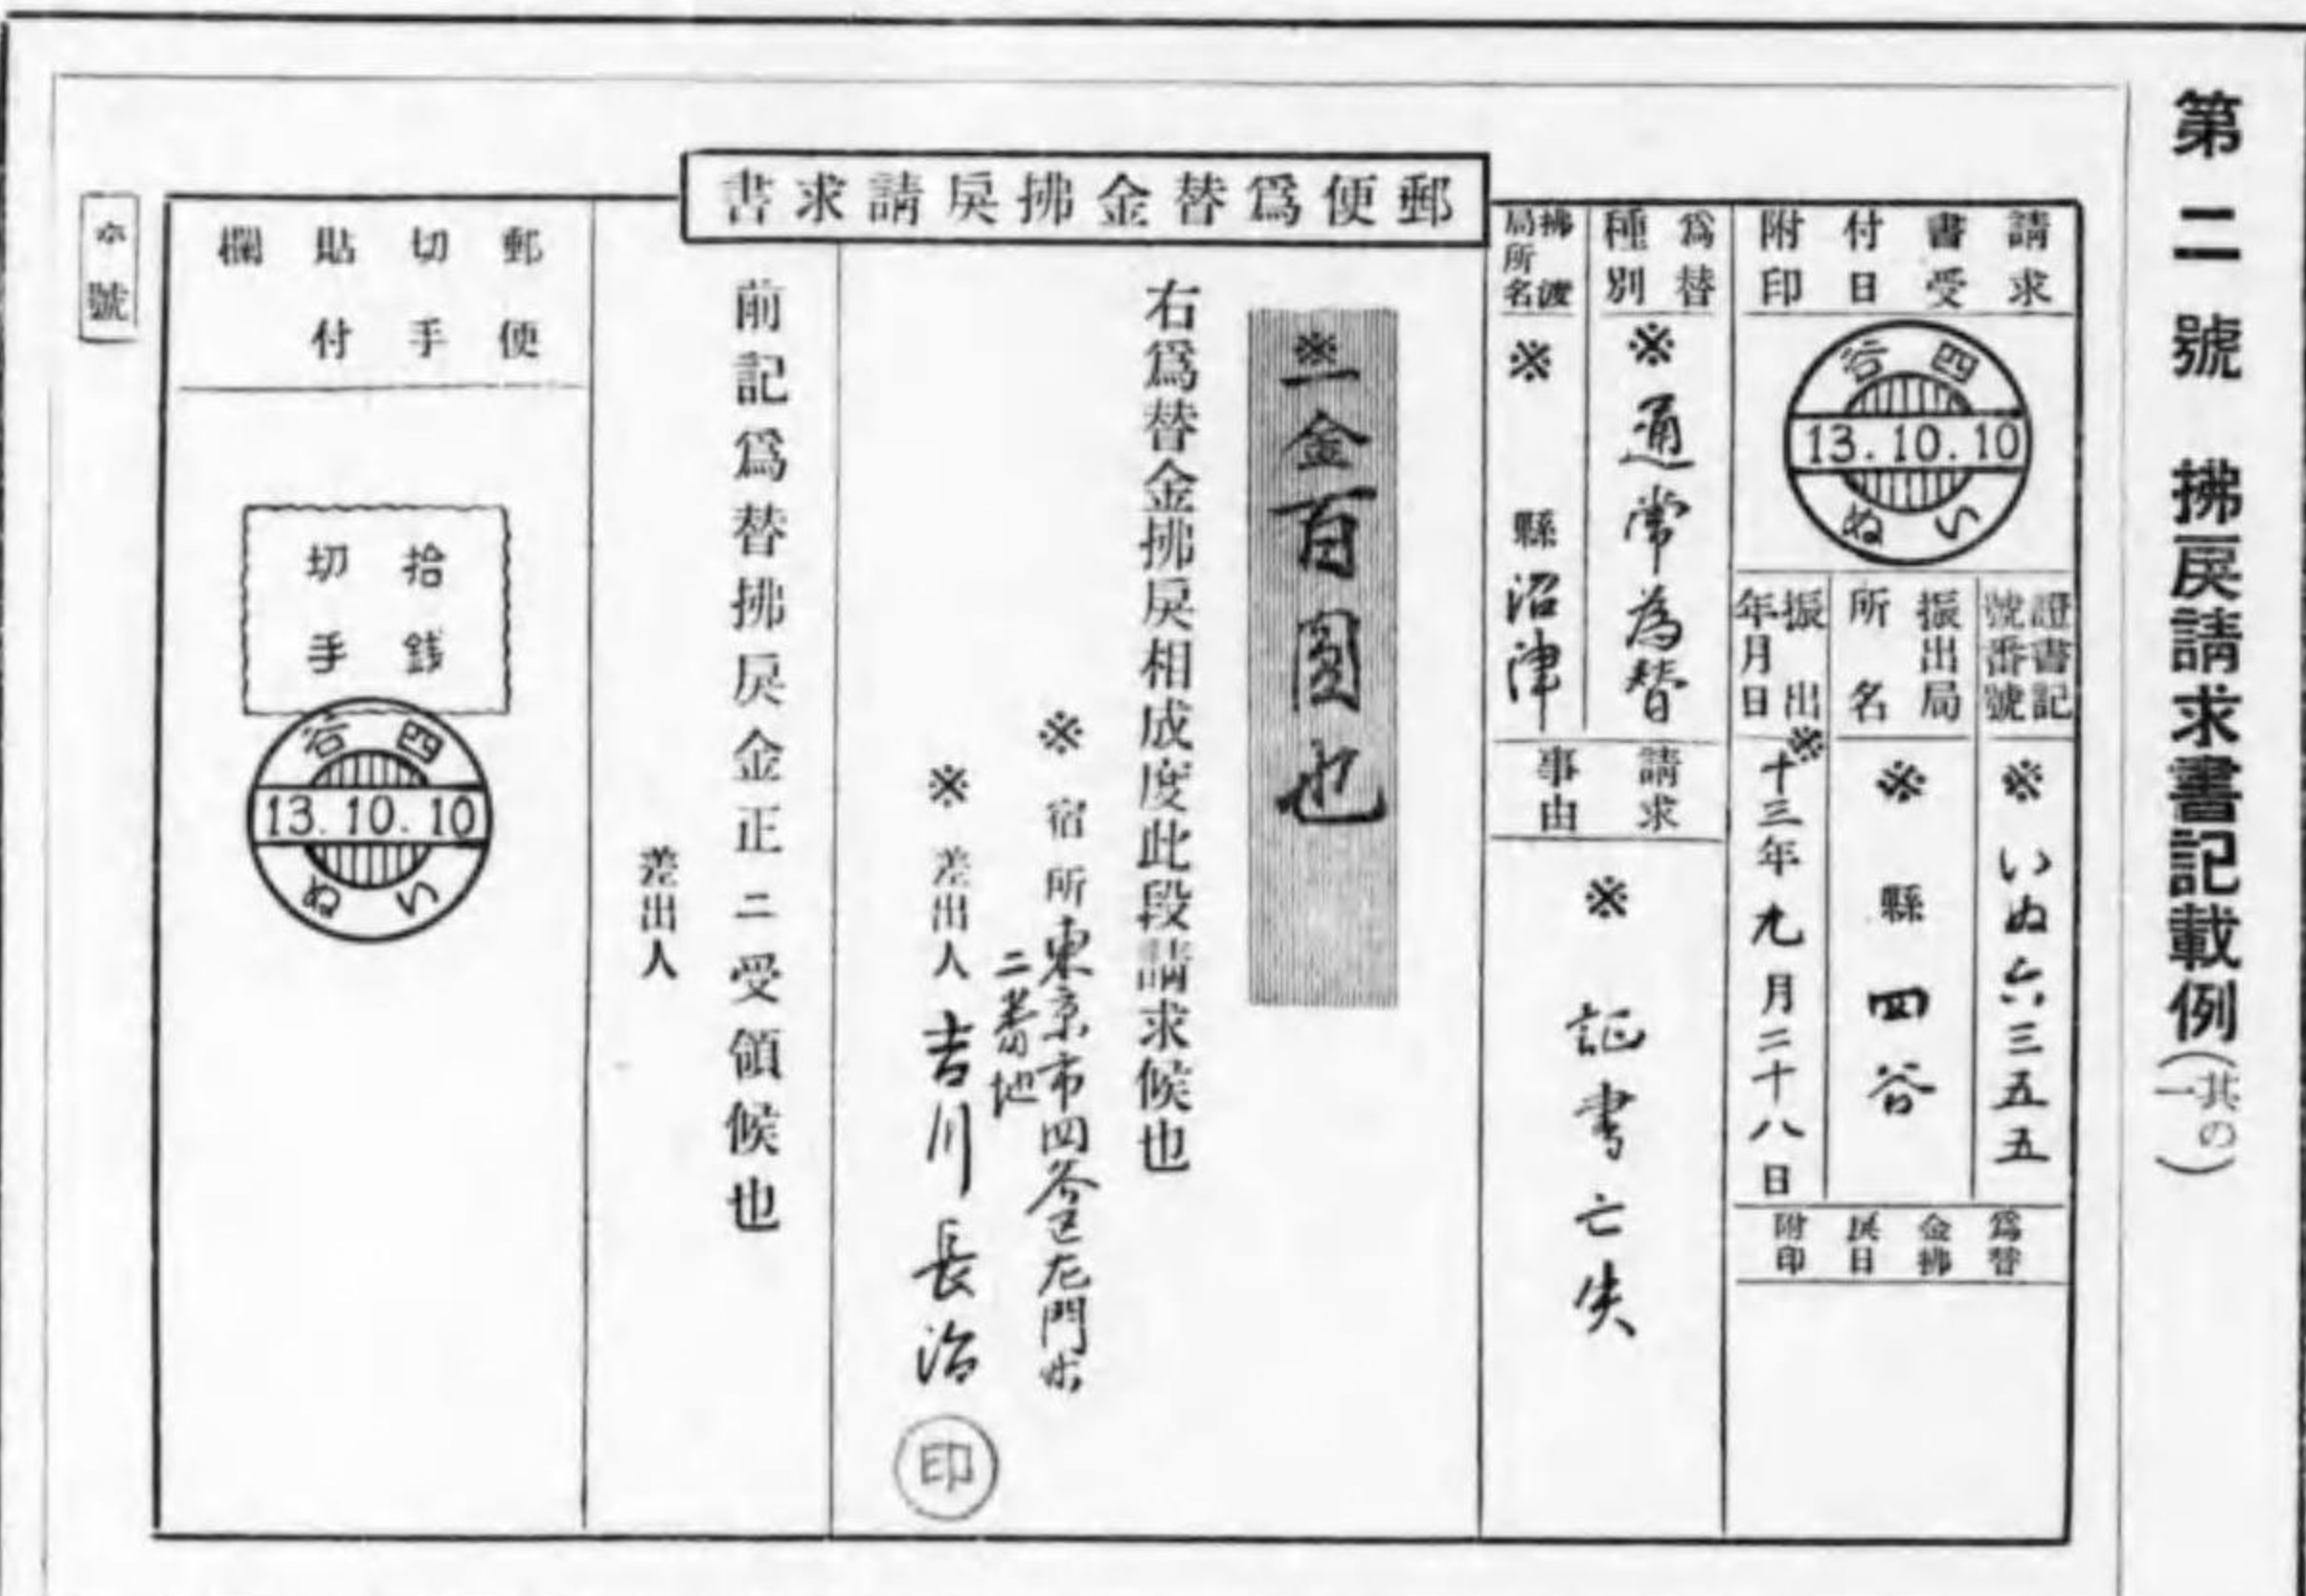 第二號 拂戾請求書記載例(其の一)
郵便爲替金拂戾請求書
請求書受付日附印
四谷
13.10.10
いぬ
證書記號番號
※いぬ六三五五
振出局所名
※縣四谷
振出年月日
※十三年九月二十八日
爲替金拂戾日附印
爲替種別
※通常為替
拂渡局所名
※縣沼津
請求事由
※証書亡失
※一金百圓也
右爲替金拂戾相成度此段請求候也
※宿所東京市四谷区左門町
二番地
※差出人吉川長治
印
前記爲替拂戾金正ニ受領候也
差出人
郵便切手貼付欄
拾錢
切手
四谷
13.10.10
いぬ
號